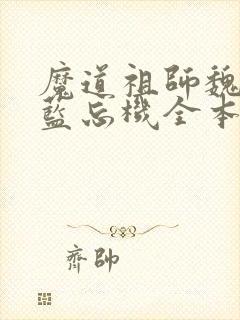 魔道祖師魏
藍忘機全本
齊帥